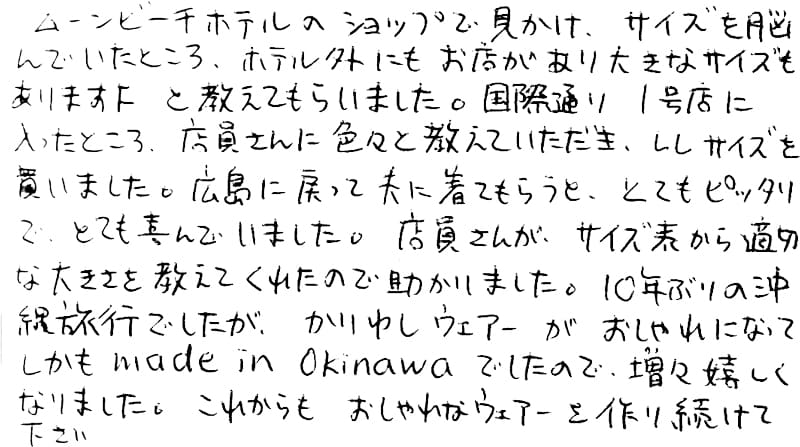 ムーンビーチホテルのショップで見かけ、サイズを脳
んでいたところ、ホテル外にもお店があり大きなサイズも
ありますよ と教えてもらいました。国際通り 1号店に
入ったところ、店員さんに色々と教えていただき、LLサイズを
買いました。広島に戻って夫に着てもらうと、とてもピッタリ
で、とても喜んでいました。店員さんが、サイズ表から適切
な大きさを教えてくれたので助かりました。10年ぶりの沖
縄旅行でしたが、かりゆしウェアーがおしゃれになって
しかもmade in Okinawaでしたので、増々嬉しく
なりました。これからも おしゃれなウェアーを作り続けて
下さい